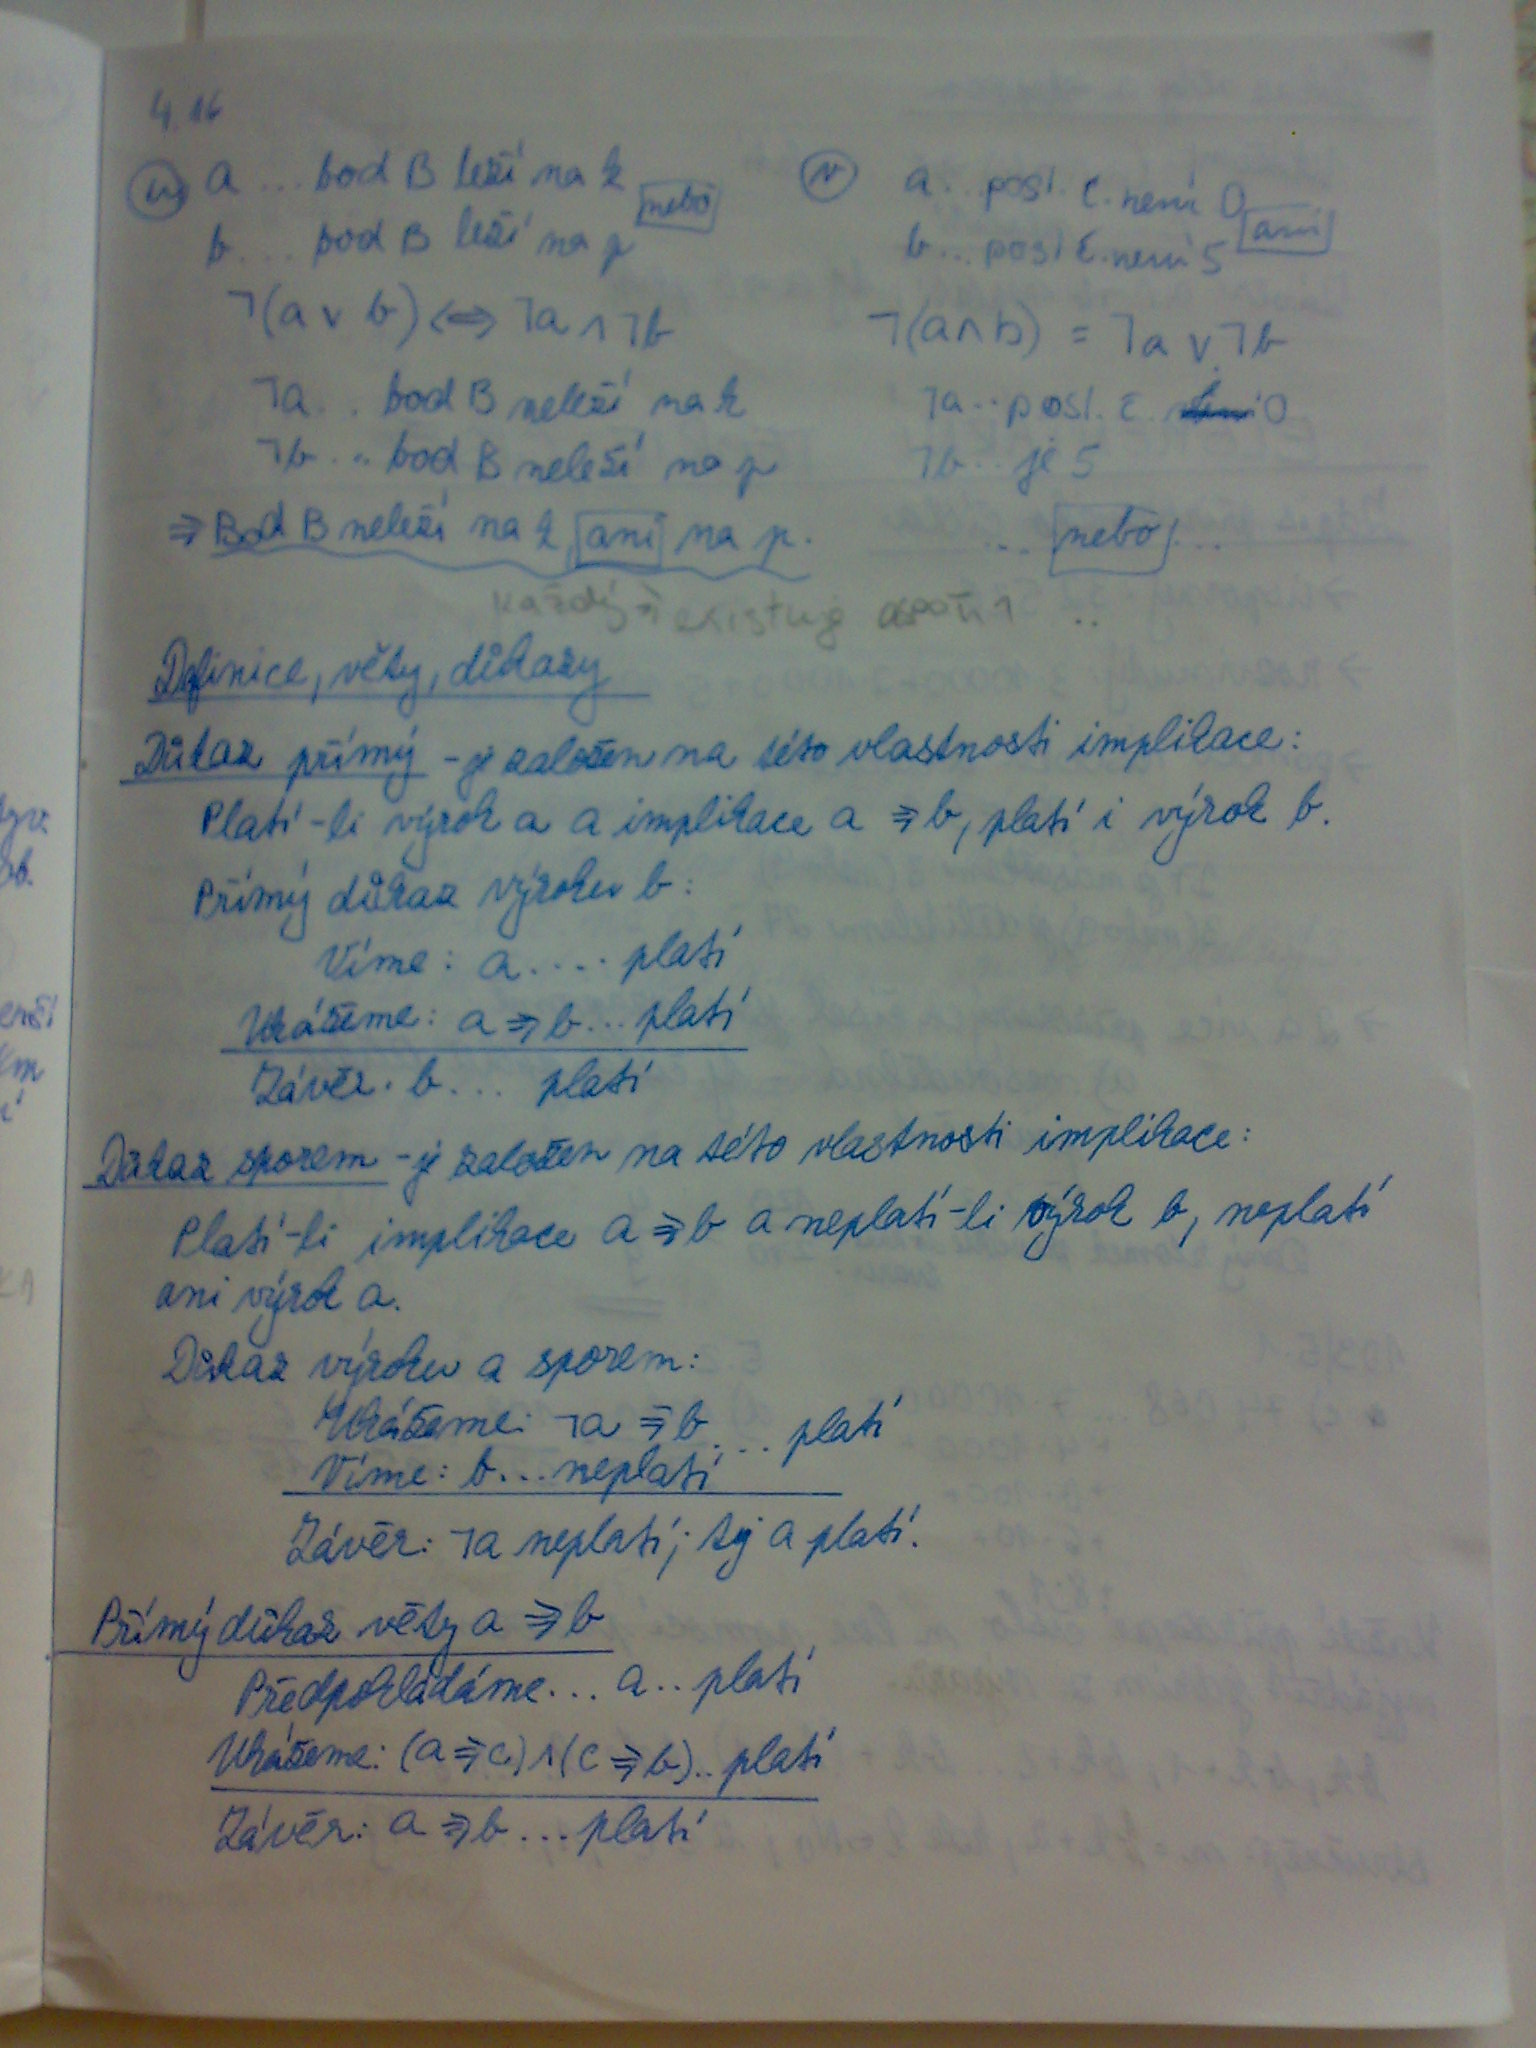 4.16
u) a ... bod B leží na k
nebo
b ... bod B leží na p
¬(a ∨ b) ⇔ ¬a ∧ ¬b
¬a ... bod B neleží na k
¬b ... bod B neleží na p
⇒ Bod B neleží na k ani na p.
v) a ... posl. č. není 0
ani
b ... posl č. není 5
¬(a ∧ b) = ¬a ∨ ¬b
¬a ... posl. č. 0
¬b ... je 5
... nebo ...
každý → existuje aspoň 1 ..
Definice, věty, důkazy
Důkaz přímý - je založen na této vlastnosti implikace:
Platí-li výrok a a implikace a ⇒ b, platí i výrok b.
Přímý důkaz výroku b:
Víme: a .... platí
Ukážeme: a ⇒ b ... platí
Závěr: b ... platí
Důkaz sporem - je založen na této vlastnosti implikace:
Platí-li implikace a ⇒ b a neplatí-li výrok b, neplatí
ani výrok a.
Důkaz výroku a sporem:
Ukážeme: ¬a ⇒ b ... platí
Víme: b ... neplatí
Závěr: ¬a neplatí; tj a platí.
Přímý důkaz věty a ⇒ b
Předpokládáme ... a .. platí
Ukážeme: (a ⇒ c) ∧ (c ⇒ b) .. platí
Závěr: a ⇒ b ... platí